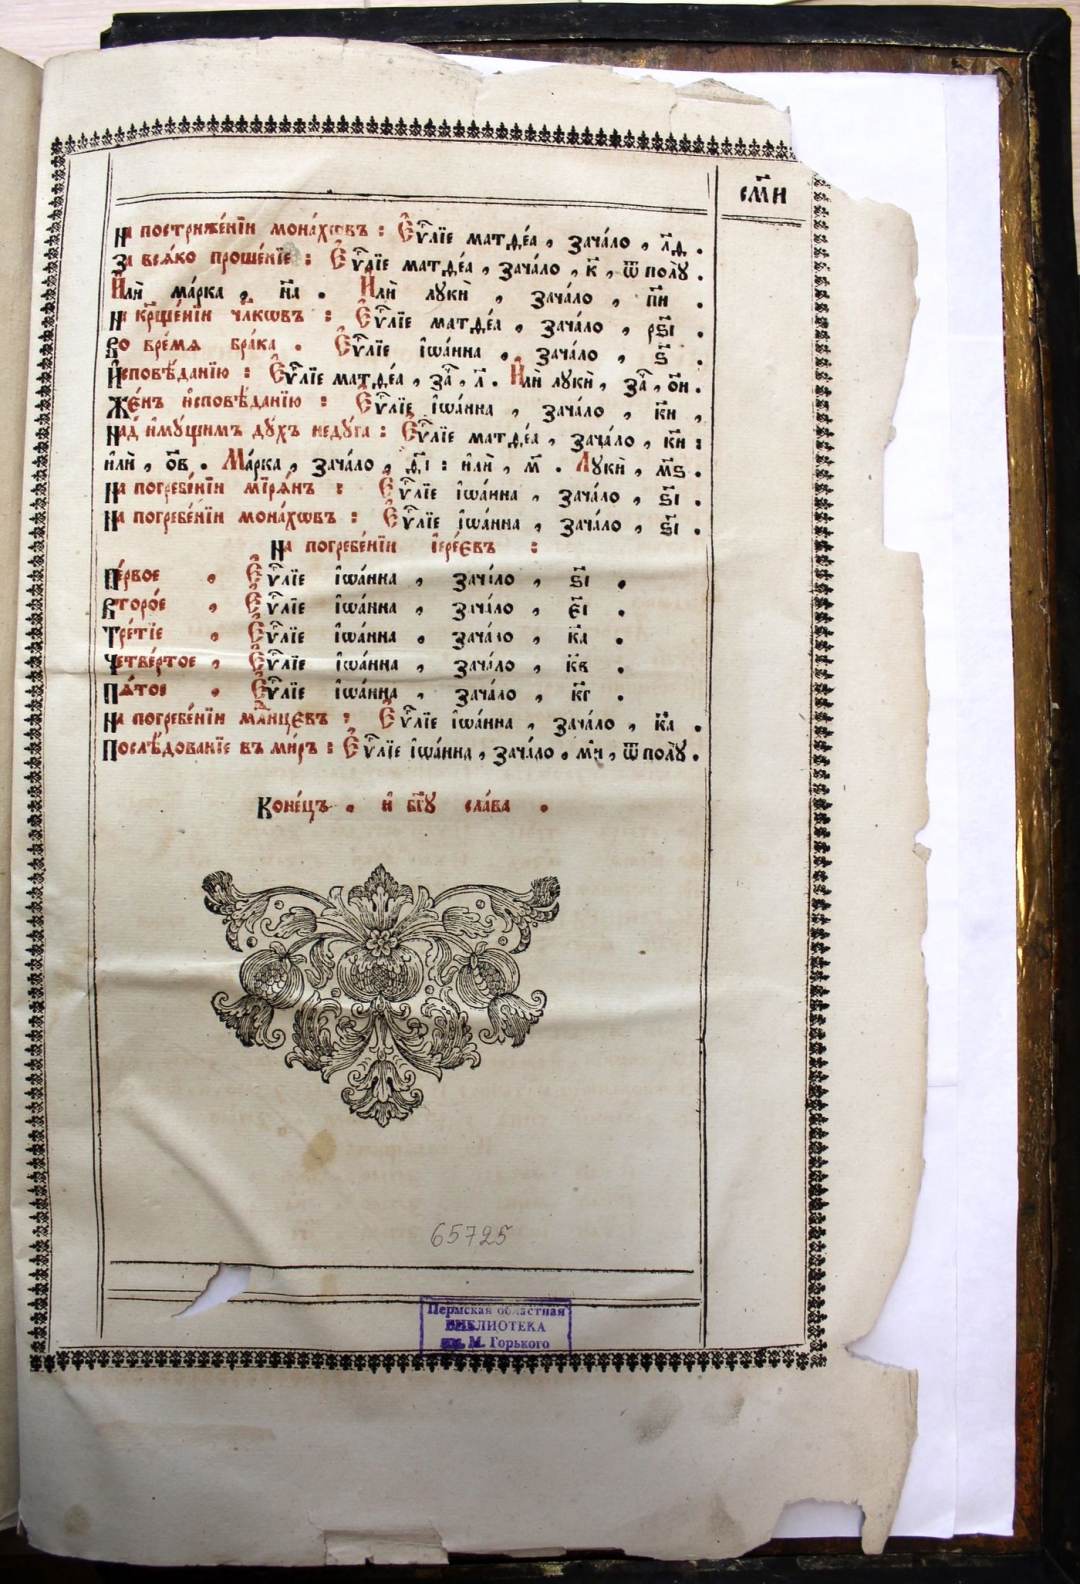 см҃и
На постриже́нїи мона́хѡвъ : Є҆ѵⷢ҇лїе матѳе́а , зача́ло , л҃д .
За всѧ́ко проше́нїе : Є҆ѵⷢ҇лїе матѳе́а , зача́ло , к҃ , ѿ полꙋ̀ .
И҆лѝ ма́рка , н҃а . И҆лѝ лꙋкѝ , зача́ло , п҃и .
На крⷭ҇ще́нїи чл҃кѡвъ : Є҆ѵⷢ҇лїе матѳе́а , зача́ло , рѕ҃і .
Во вре́мѧ бра́ка . Є҆ѵⷢ҇лїе і҆ѡа́нна , зача́ло , ѕ҃ .
И҆сповѣ́данїю : Є҆ѵⷢ҇лїе матѳе́а , заⷱ҇ , л҃ . И҆лѝ лꙋкѝ , заⷱ҇ , о҃и .
Же́нъ и҆сповѣ́данїю : Є҆ѵⷢ҇лїе і҆ѡа́нна , зача́ло , к҃и ,
Над̾ и҆мꙋ́щимъ дꙋ́хъ недꙋ́га : Є҆ѵⷢ҇лїе матѳе́а , зача́ло , к҃и :
и҆лѝ , о҃в . Ма́рка , зача́ло , д҃і : и҆лѝ , м҃ . Лꙋкѝ , м҃ѕ .
На погребе́нїи мїрѧ́нъ : Є҆ѵⷢ҇лїе і҆ѡа́нна , зача́ло , ѕ҃і .
На погребе́нїи мона́хѡвъ : Є҆ѵⷢ҇лїе і҆ѡа́нна , зача́ло , ѕ҃і .
На погребе́нїи і҆ере́євъ :
Пе́рвое , Є҆ѵⷢ҇лїе і҆ѡа́нна , зача́ло , ѕ҃і .
Второ́е , Є҆ѵⷢ҇лїе і҆ѡа́нна , зача́ло , є҃і .
Тре́тїе , Є҆ѵⷢ҇лїе і҆ѡа́нна , зача́ло , к҃а .
Четве́ртое , Є҆ѵⷢ҇лїе і҆ѡа́нна , зача́ло , к҃в .
Пѧ́тое , Є҆ѵⷢ҇лїе і҆ѡа́нна , зача́ло , к҃г .
На погребе́нїи млⷣнцєвъ : Є҆ѵⷢ҇лїе і҆ѡа́нна , зача́ло , к҃а .
Послѣ́дованїе въ ми́ръ : Є҆ѵⷢ҇лїе і҆ѡа́нна , зача́ло , м҃и , ѿ полꙋ̀ .
Коне́цъ . и҆ бг҃ꙋ сла́ва .
65725
Пермская областная
БИБЛИОТЕКА
им. М. Горького